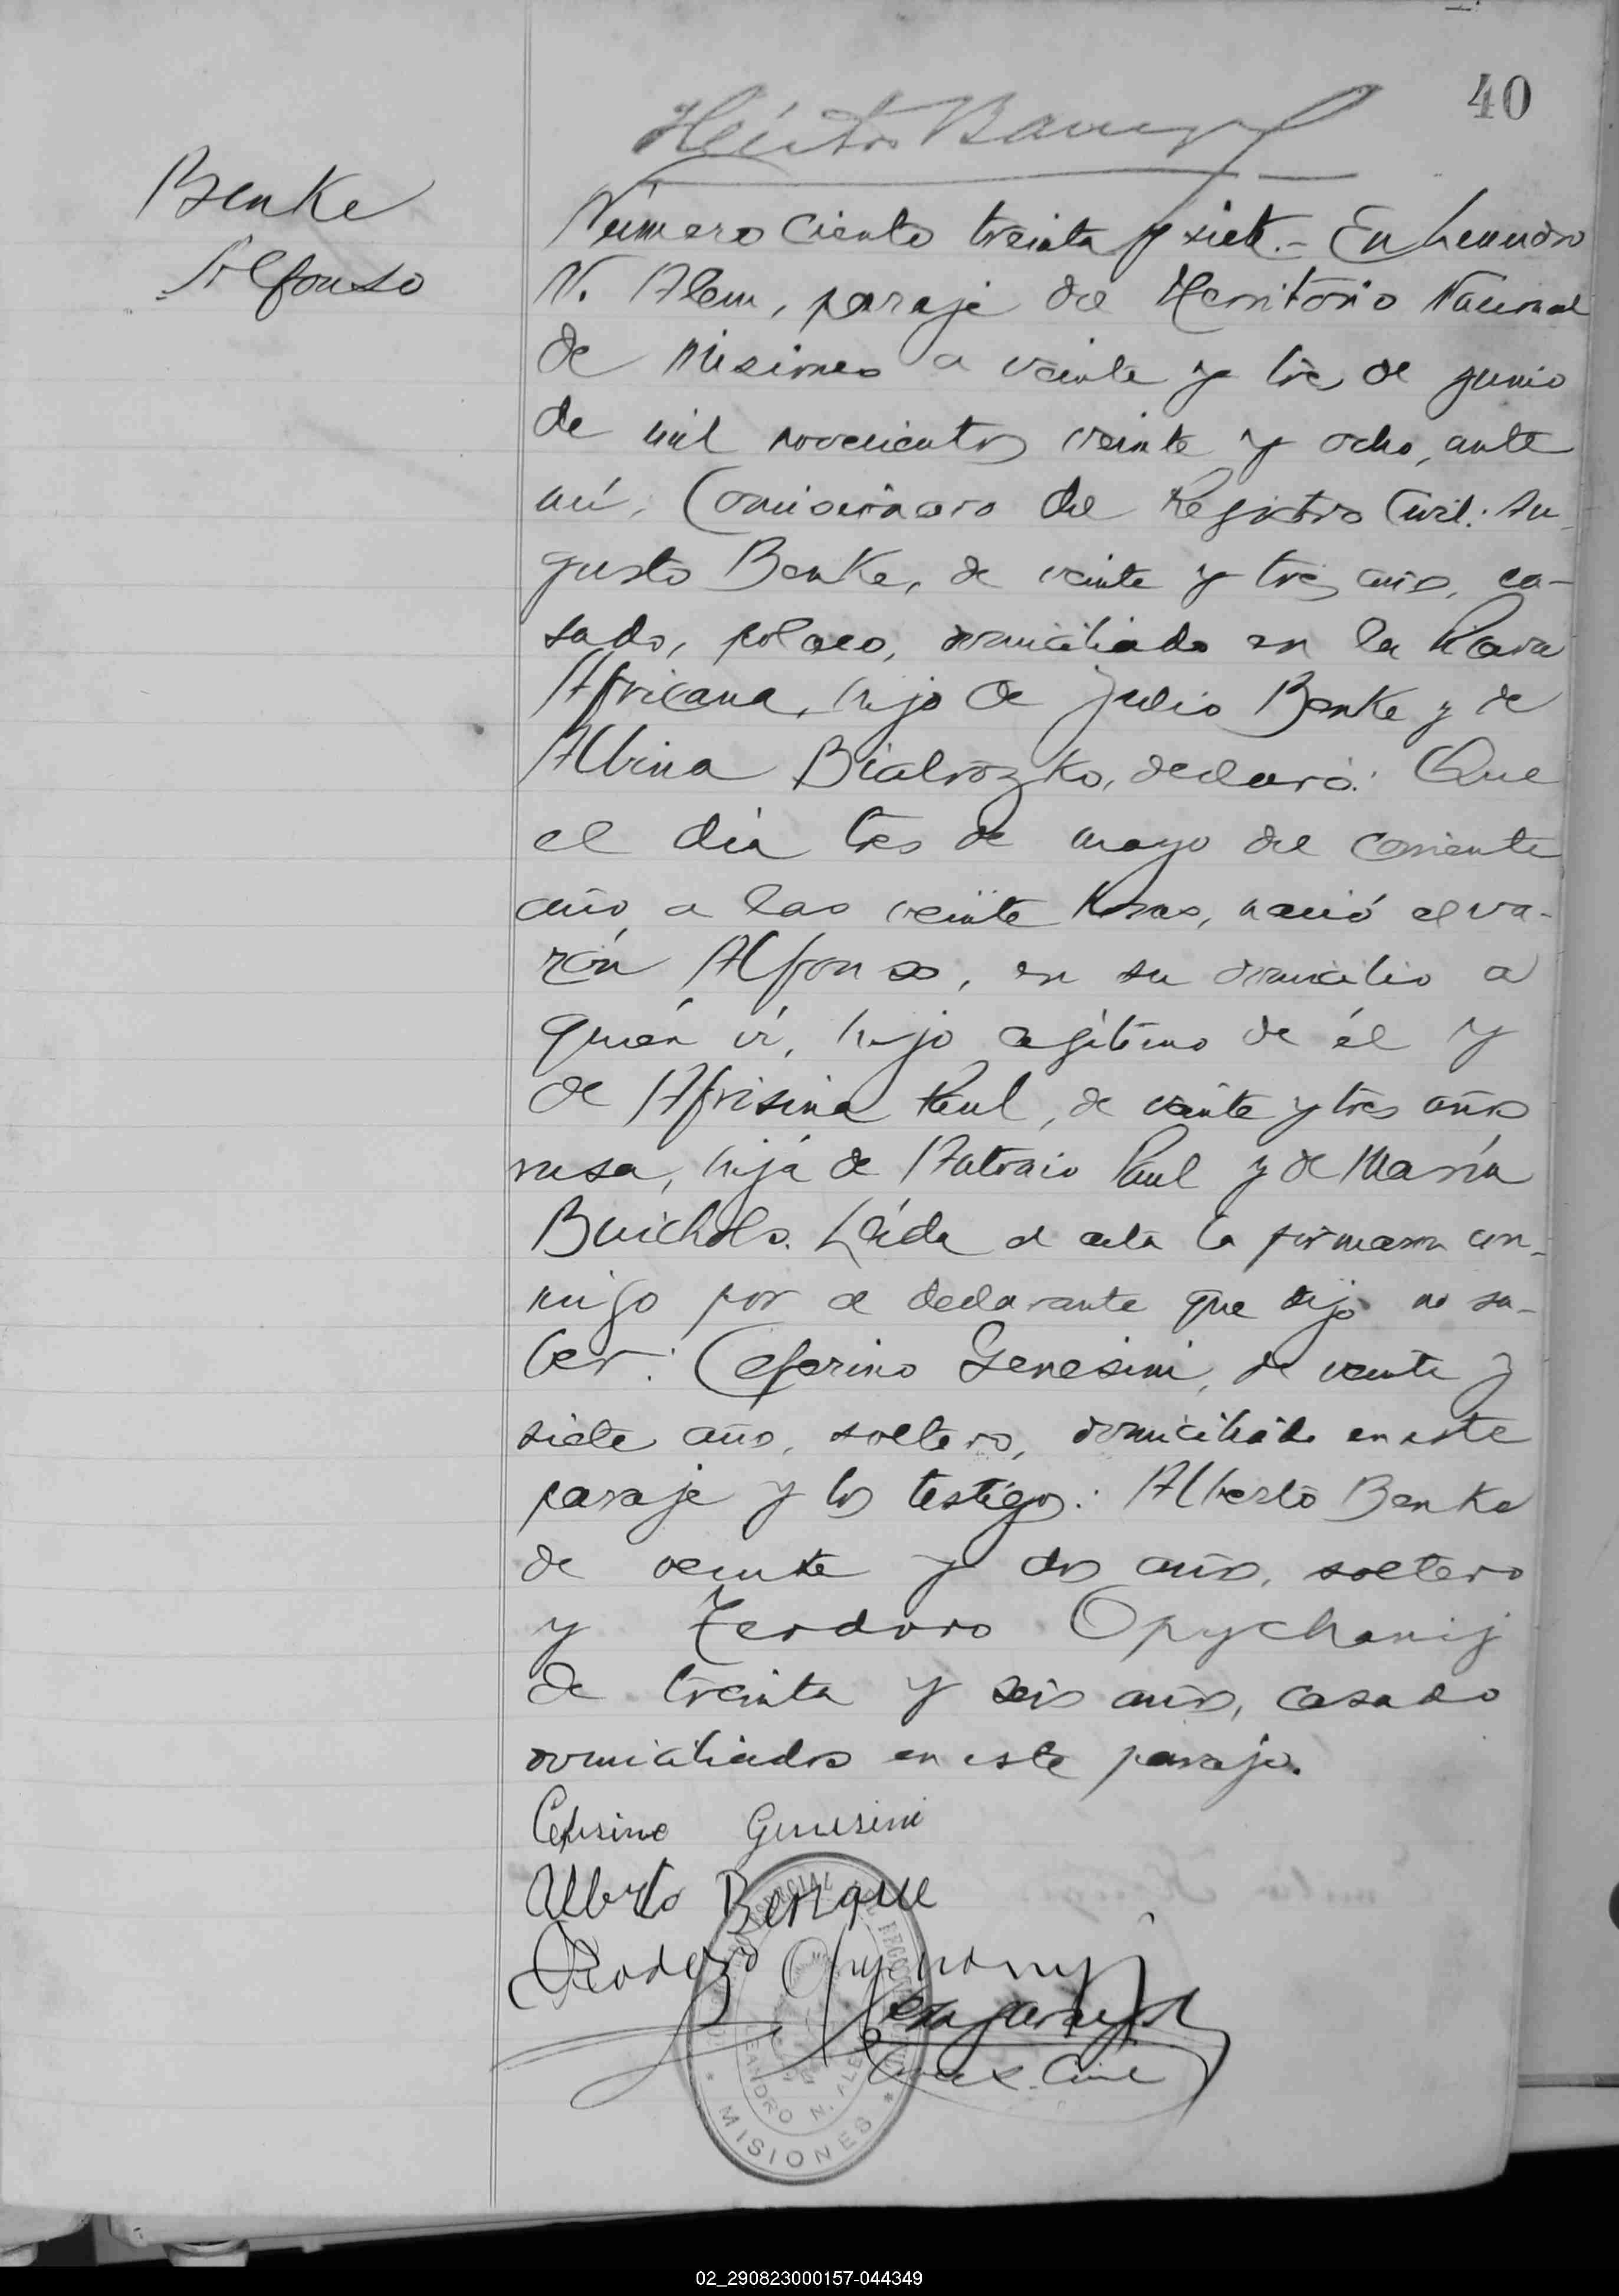 40
Benke
Alfonso
Número ciento treinta y siete.- En Leandro
N. Alem, paraje del Territorio Nacional
de Misiones a veinte y tres de junio
de mil novecientos veinte y ocho, ante
mí, Comisionado del Registro Civil: Au-
gusto Benke, de veinte y tres años, ca-
sado, polaco, domiciliado en la
Africana, hijo de Julio Benke y de
Albina Bialrozko, declaró: Que
el día tres de mayo del corriente
año, a las veinte horas, nació el va-
rón Alfonso, en su domicilio a
quién ví, hijo legítimo de él y
de Afrisina Paul, de veinte y tres años
rusa, hija de Antonio Paul y de María
Buichols. Leída el acta la firmaron con-
migo por el declarante que dijo no sa-
ber: Ceferino Genesini, de veinte y
siete años, soltero, domiciliado en este
paraje y los testigos: Alberto Benke
de veinte y dos años, soltero
y Teodoro Opychanij
de treinta y seis años, casado
domiciliados en este paraje.
Ceferino Genesini
Alberto Benque
Teodoro
LEANDRO N. ALEM
* MISIONES *
02_290823000157-044349